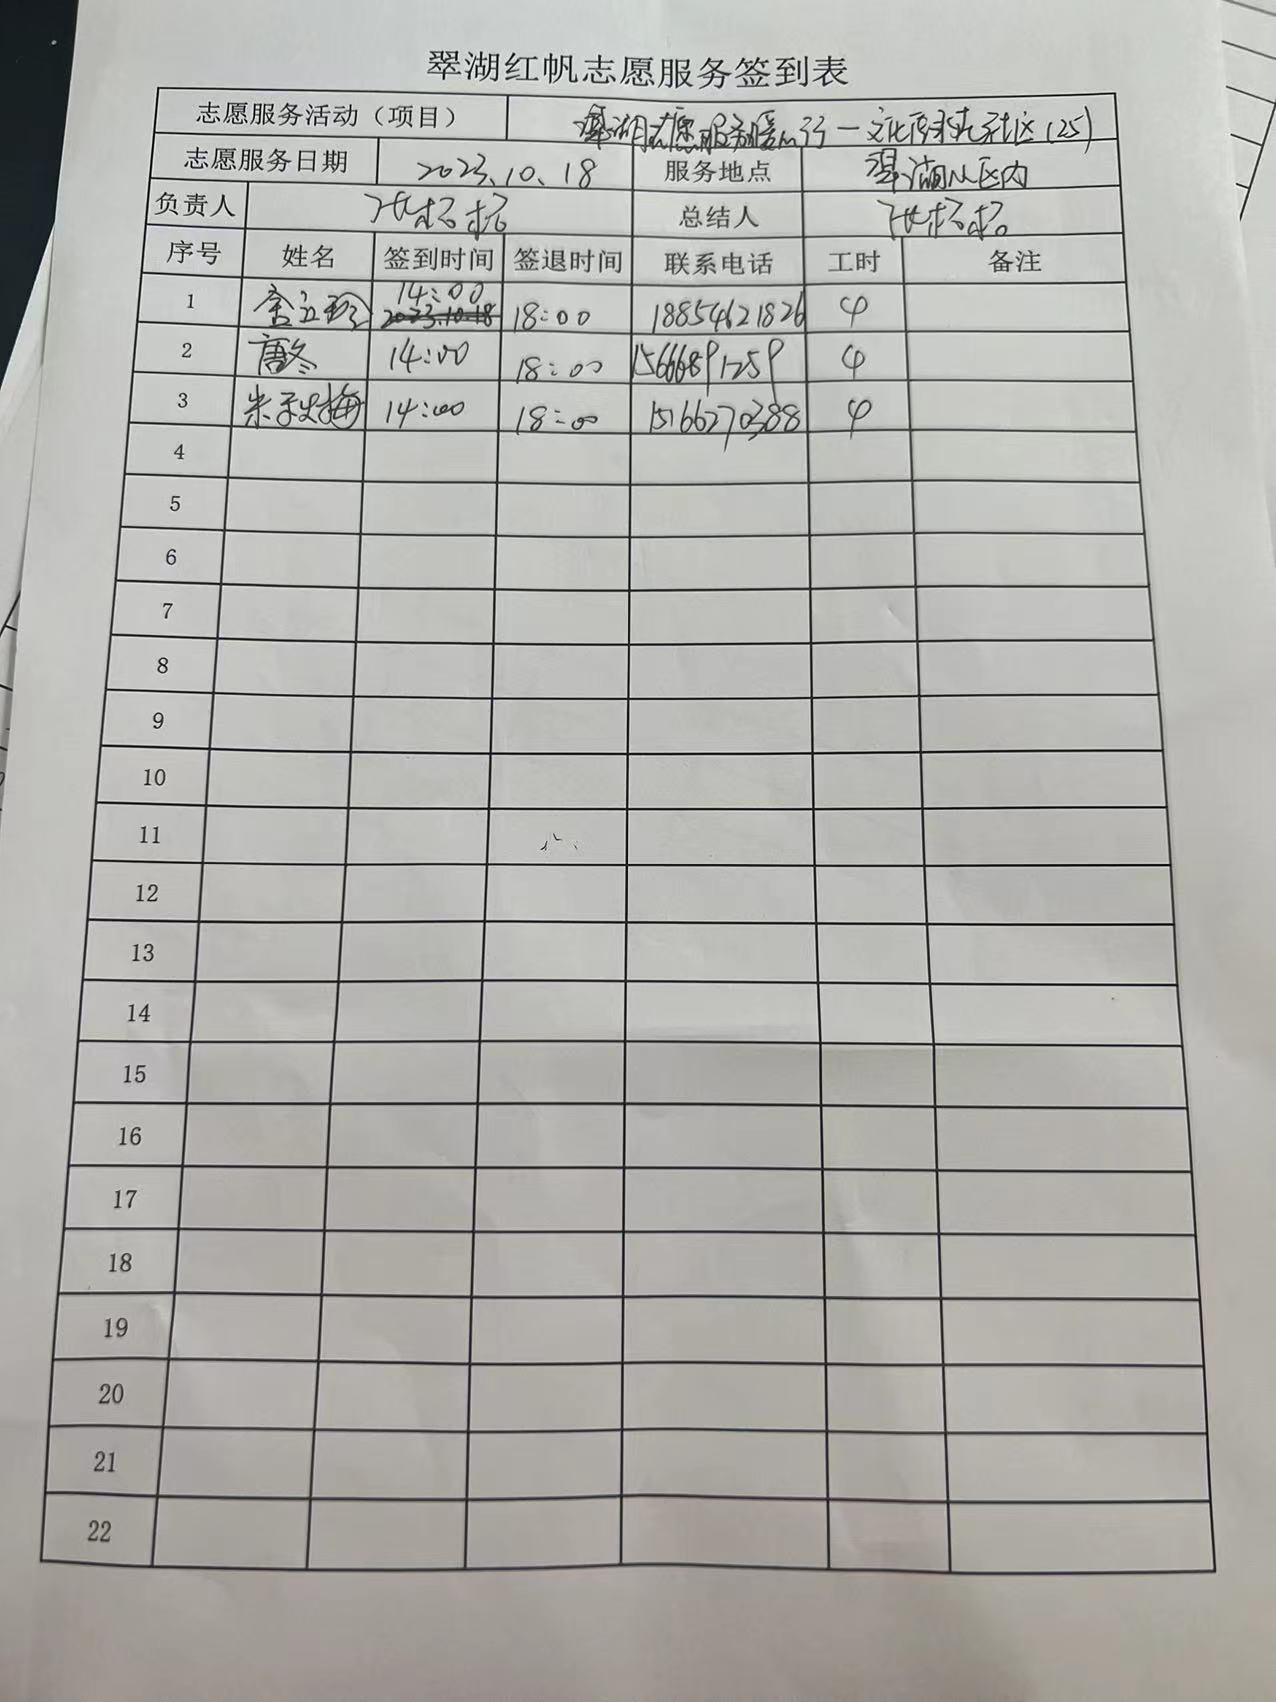 翠湖红帆志愿服务签到表
志愿服务活动（项目） 翠湖志愿服务暖心行一文化 社区(25)
志愿服务日期 2023.10.18 服务地点 翠湖小区内
负责人 总结人
序号 姓名 签到时间 签退时间 联系电话 工时 备注
1 14:00 2023.10.18 18:00 18854621826 4
2 唐冬 14:00 18:00 15666891259 4
3 米秋梅 14:00 18:00 15166270388 4
4
5
6
7
8
9
10
11
12
13
14
15
16
17
18
19
20
21
22